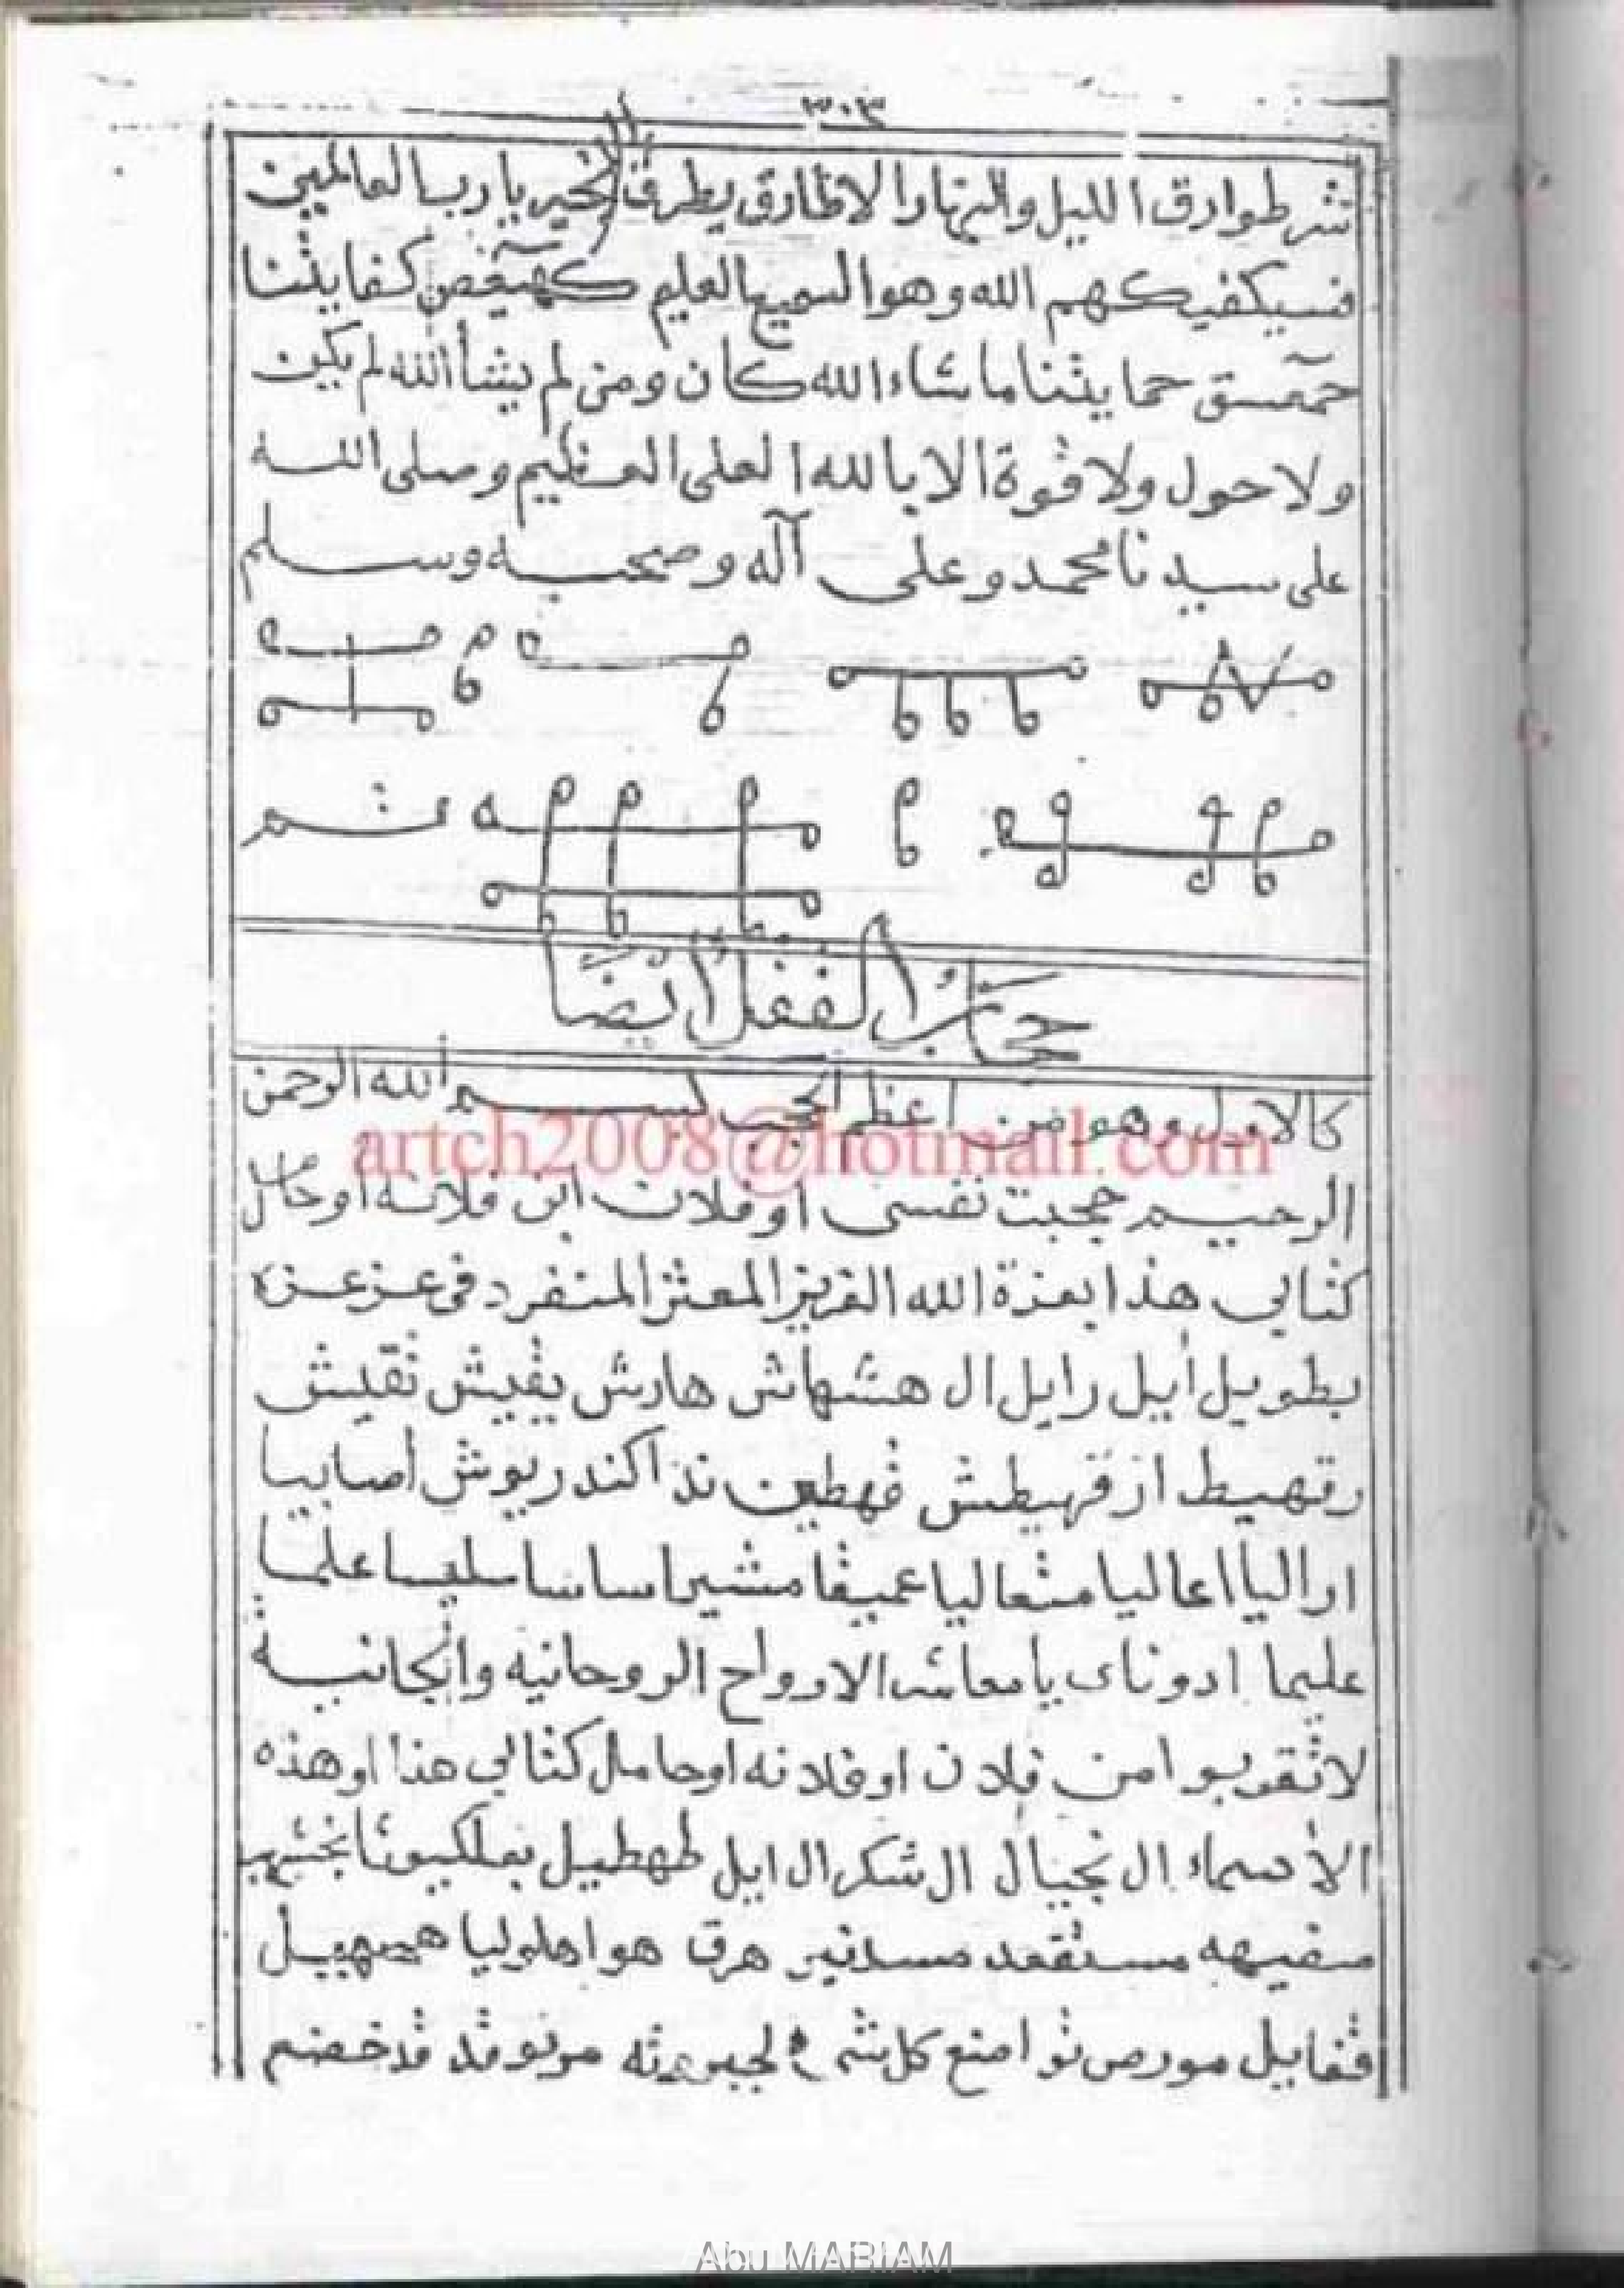 ٣٠٣
شر طوارق الليل والنهار الا طارق يطرق بخير يا رب العالمين
فسيكفيكهم الله وهو السميع العليم كهيعص كفايتنا
حمعسق حمايتنا ما شاء الله كان ومن لم يشأ الله لم يكن
ولا حول ولا قوة الا بالله العلى العظيم وصلى الله
على سيدنا محمد وعلى آله وصحبه وسلم
حجاب القفل ايضا
كالاول وهو من اعظم الحجب بسم الله الرحمن
الرحيم حجبت نفسى او فلان ابن فلانه او حامل
كتابي هذا بعزة الله العزيز المعتز المتفرد فى عز عزه
بطويل اييل رايل ال هشهاش هارش يفيش نقيش
رقهيط از قهيطش فهطين نذا كندريوش اصابيا
ارا اليا اعاليا متعاليا عميقا مشيرا ساسا سليعا علما
عليما ادوناى يا معاشر الارواح الروحانيه والجانية
لا تقربوا من فلان او فلانه او حامل كتابي هذا او هذه
الأسماء ال نجيال ال شكر ال ايل طهطيل
سفيهه مستقعد هرق هوا هلوليا
قفاييل امنع كل قد خضع
artch2008@hotmail.com
Abu MARIAM